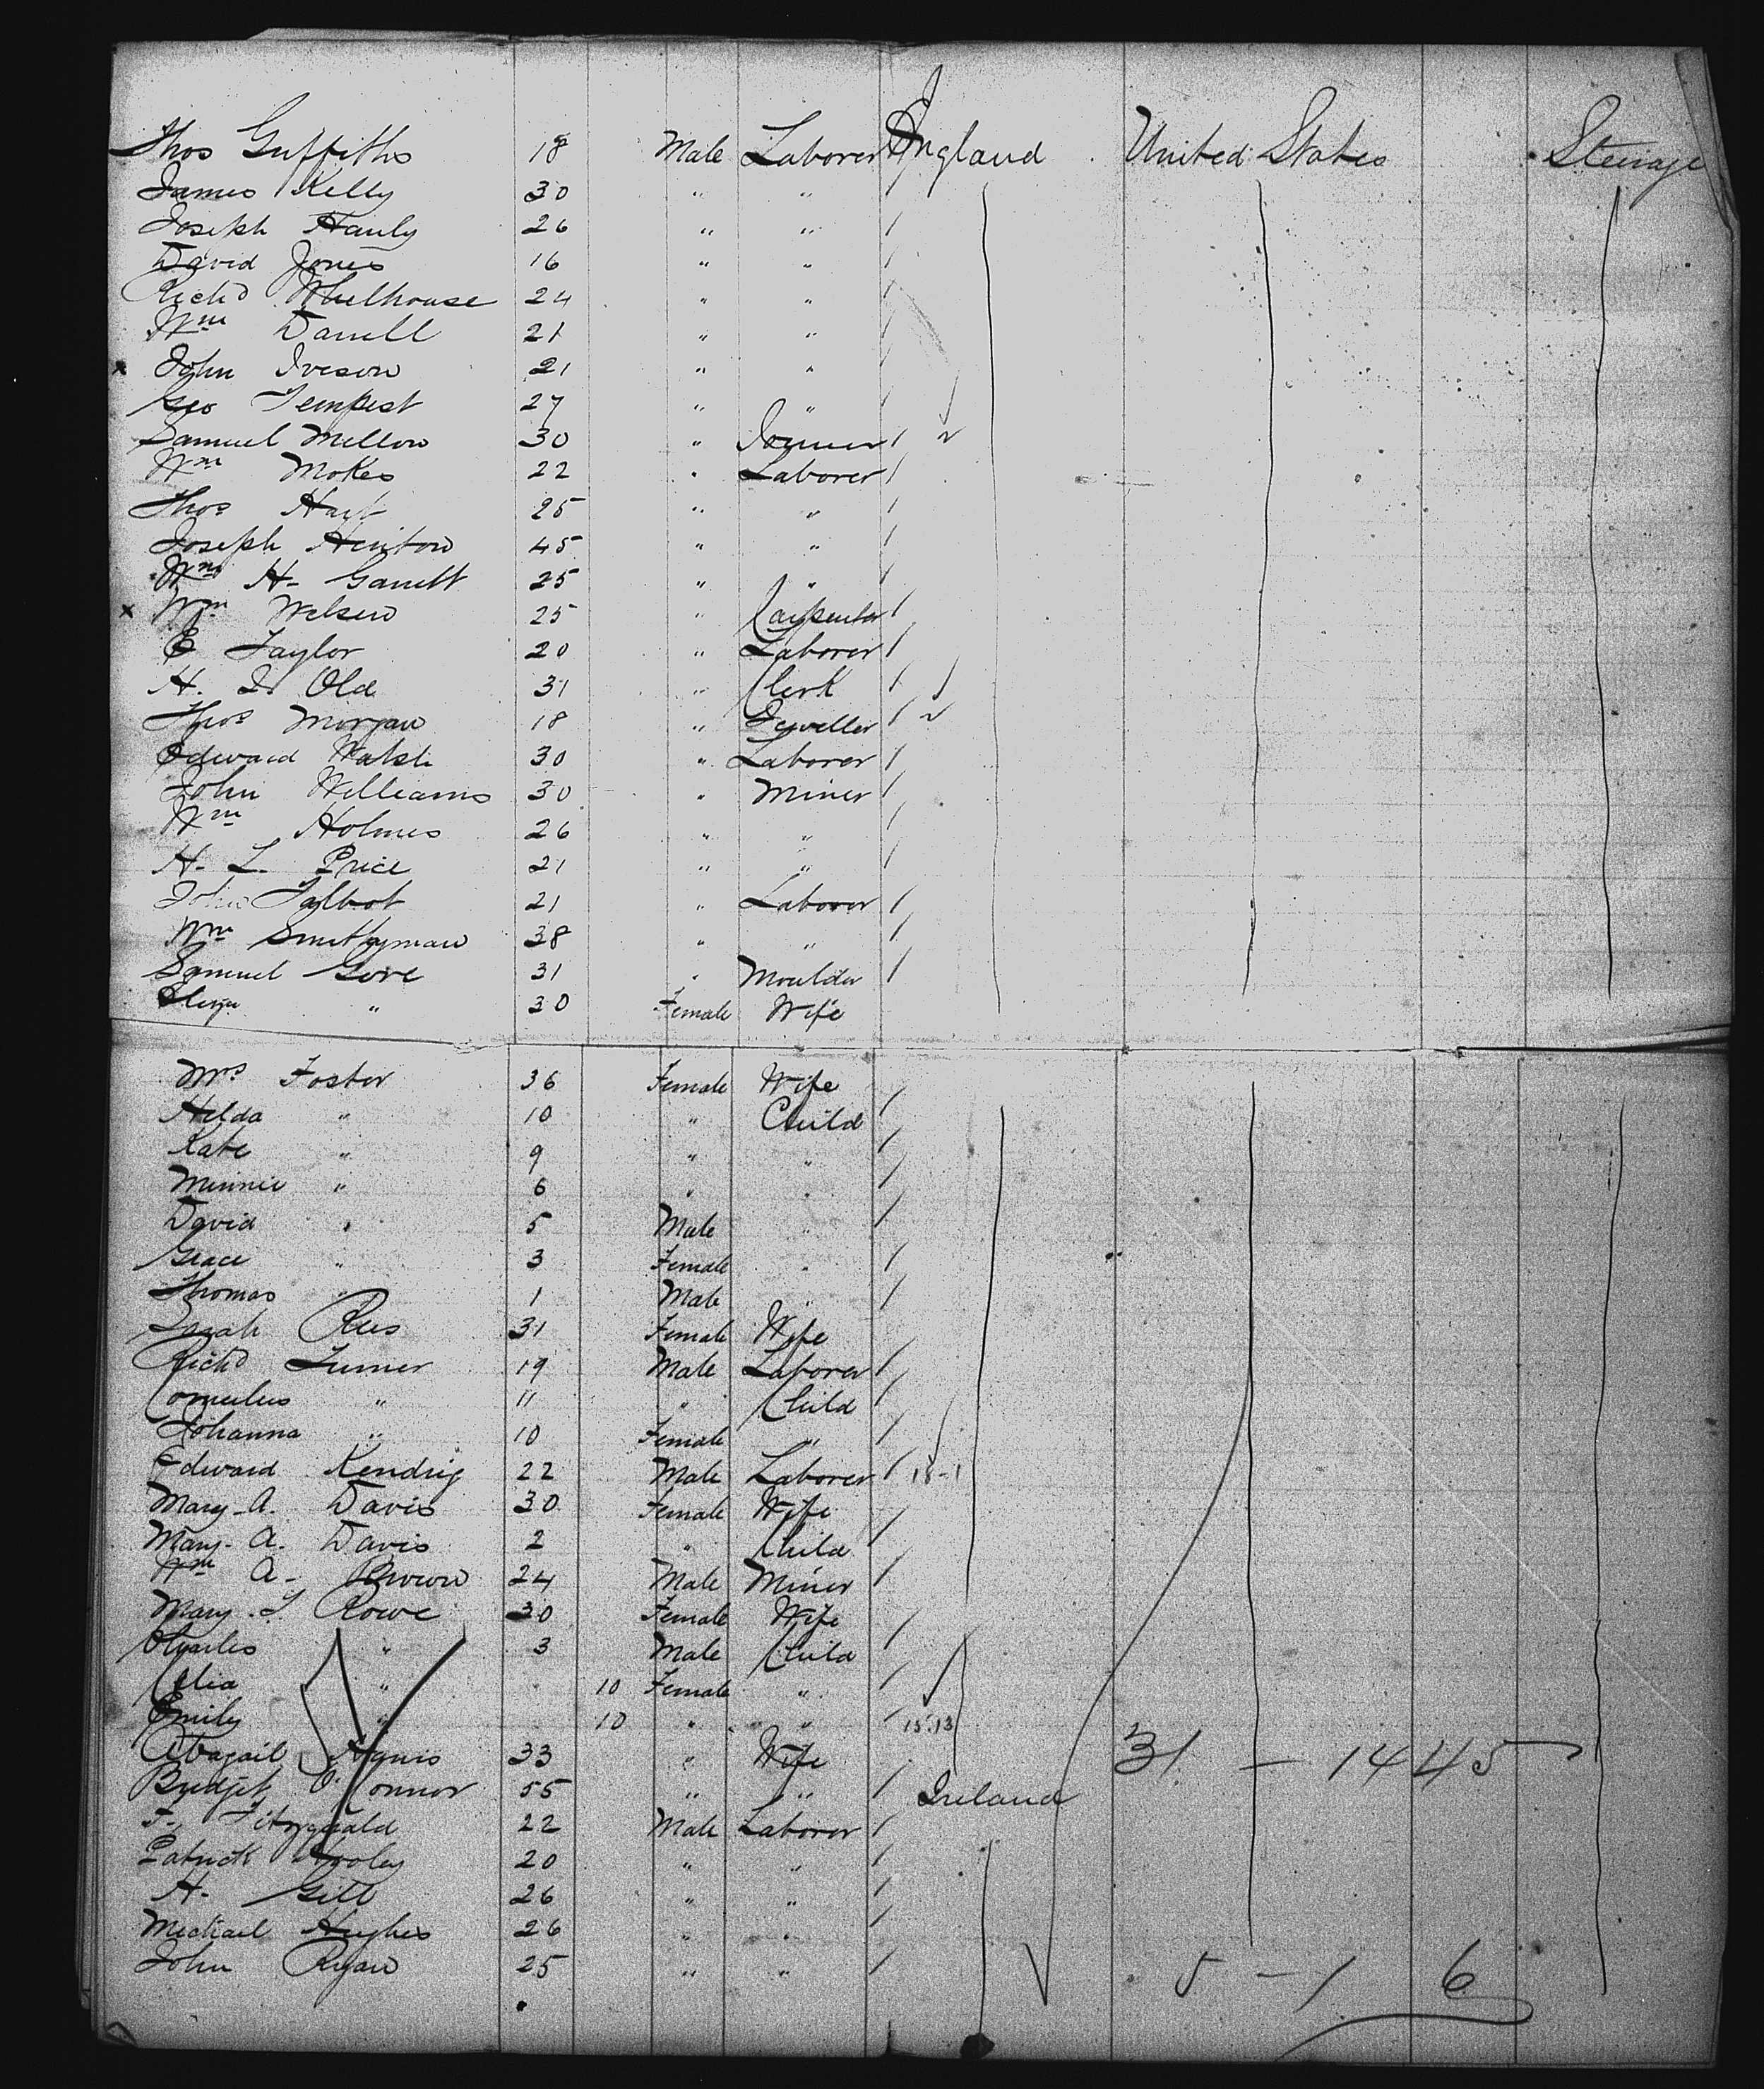 Thos Griffiths 18 Male Laborer England United States Steerage
James Kelly 30 " "
Joseph Hanly 26 " "
David Jones 16 " "
Richd Wheelhouse 24 " "
Wm Darrell 21 " "
x John Iveson 21 " "
Geo Tempest 27 " "
Samuel Mellow 30 " Joiner
Wm Mokes 22 " Laborer
Thos Hart 25 " "
Joseph Hinton 45 " "
Wm H- Garrett 25 " "
x Wm Welsen 25 " Carpenter
E Taylor 20 " Laborer
H. Old 31 " Clerk
Thos Morgan 18 " Jeweller
Edward Walsh 30 " Laborer
John Williams 30 " Miner
Wm Holmes 26 " "
H- L. Price 21 " "
John Talbot 21 " Laborer
Wm Smithyman 38 " "
Samuel Gore 31 " Moulder
Eliza " 30 Female Wife
Mrs Foster 36 Female Wife
Hilda " 10 " Child
Kate " 9 " "
Minnie " 6 " "
David " 5 Male "
Grace " 3 Female "
Thomas " 1 Male "
Sarah Rees 31 Female Wife
Richd Turner 19 Male Laborer
Cornelius " 11 " Child
Johanna " 10 Female "
Edward Kendrig 22 Male Laborer 18-1
Mary A. Davis 30 Female Wife
Mary- A. Davis 2 " Child
Wm A- Brown 24 Male Miner
Mary. J. Rowe 30 Female Wife
Charles " 3 Male Child
Celia " 10 Female "
Emily " 10 " " 15.13
Abagail Agnis 33 " Wife 31 - 14 45
Bridget O'Connor 55 " " Ireland
F. Fitzgerald 22 Male Laborer
Patrick Hooley 20 " "
H- Gill 26 " "
Michael Hughes 26 " "
John Ryan 25 " " 5 - 1 6